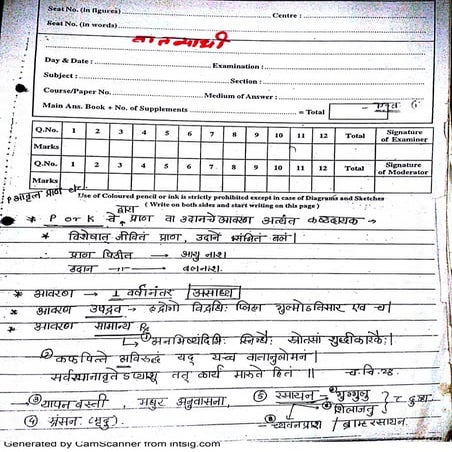 Seat No. (in figures)
Centre :
Seat No. (in words)
वातव्याधी
Day & Date :
Examination :
Subject :
Section :
Course/Paper No.
Medium of Answer :
Main Ans. Book + No. of Supplements = Total
Q.No. 1 2 3 4 5 6 7 8 9 10 11 12 Total Signature of Examiner
Marks
Q.No. 1 2 3 4 5 6 7 8 9 10 11 12 Total Signature of Moderator
Marks
Use of Coloured pencil or ink is strictly prohibited except in case of Diagrams and Sketches
( Write on both sides and start writing on this page )
द्वारा
* P or K ने प्राण वा उदानचे आवरण अत्यंत कष्टदायक
* विशेषात् जीवितं प्राण, उदाने संश्रितं बलं।
∴ प्राण पिडीत → आयु नाश।
उदान → बलनाश.
* आवरण → 1 वर्षानंतर असाध्य
* आवरण उपद्रव → हृद्रोगो विद्रधिः प्लिहा गुल्मोऽतिसार एव च।
* आवरण सामान्य Rx
① अनभिष्यंदिभिः स्निग्धैः स्रोतसां शुद्धीकारकैः।
② कफपित्ते अविरुद्धं यद् यच्च वातानुलोमनं।
सर्वस्थानावृतेऽप्याशु तत् कार्यं मारुते हितं ॥ च. चि. २८
③ यापन बस्ती, मधुर अनुवासन, ⑤ रसायन → गुग्गुलु
④ स्रंसन (मृदु) शिलाजतु
च्यवनप्राश ब्राह्मरसायन.
Generated by CamScanner from intsig.com